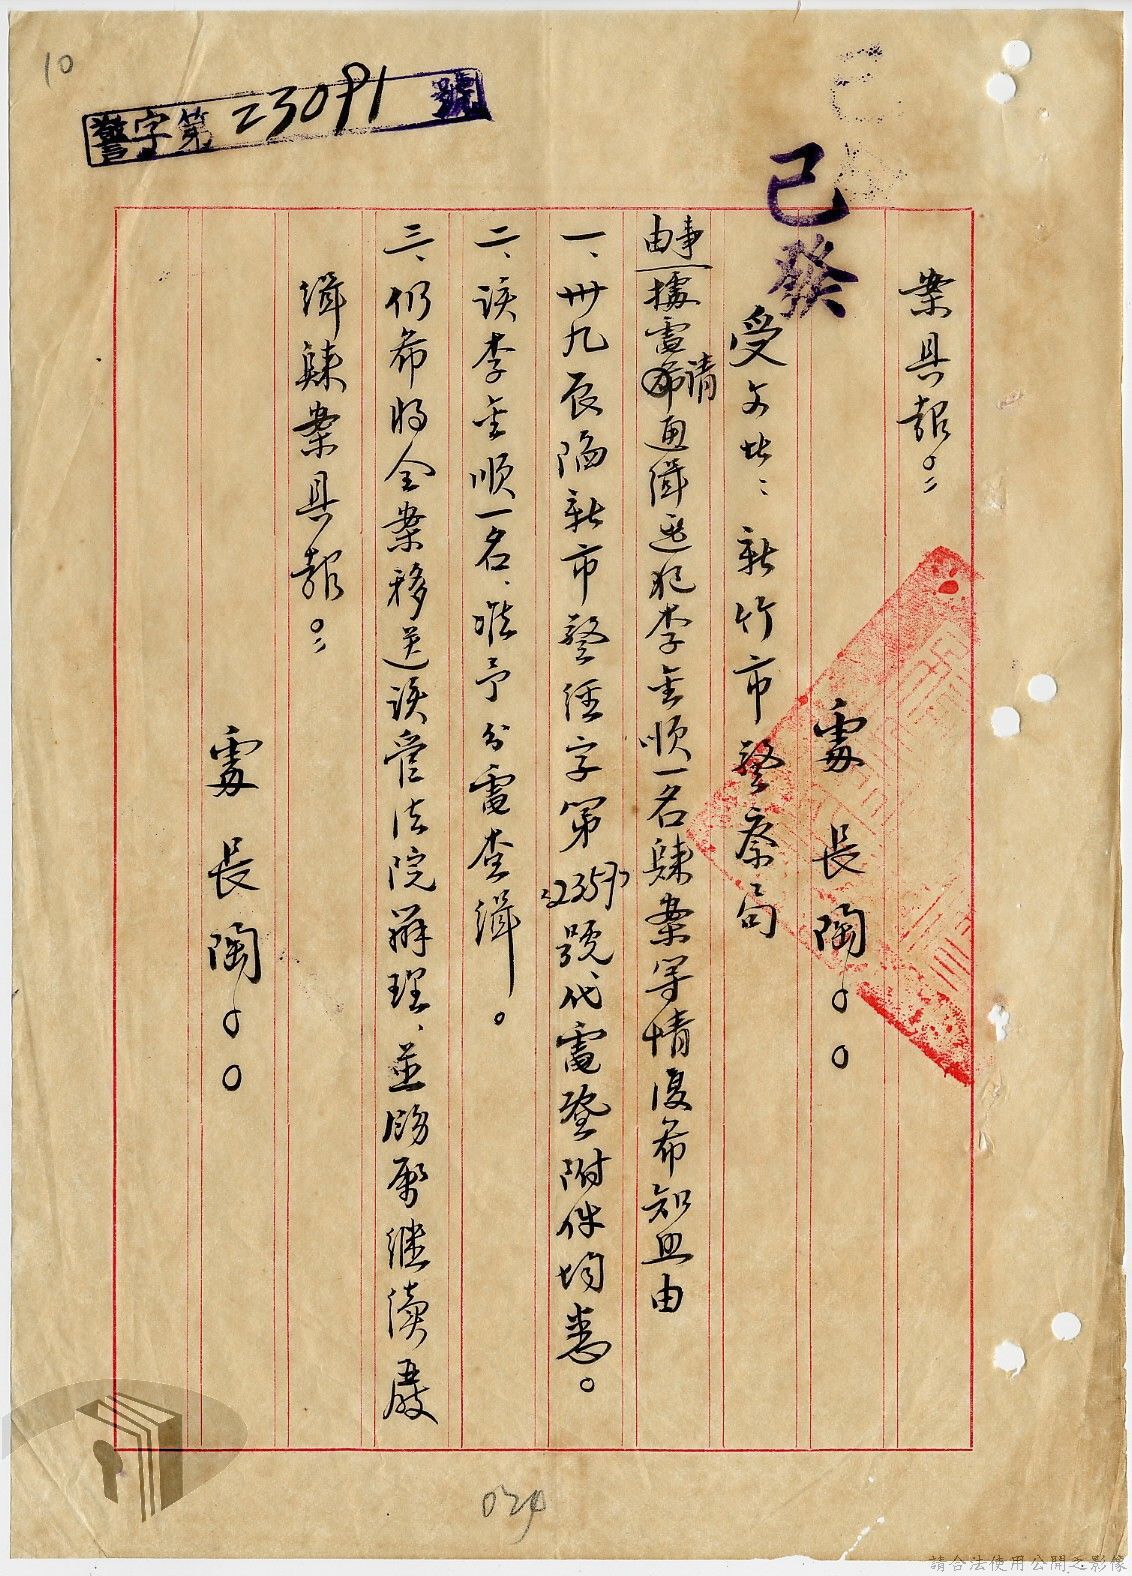 10
警字第23091號
已發
案具報。
處長陶
受文者：新竹市警察局
事由：據電請通緝逃犯李金順一名歸案等情復希知照由
一、卅九辰陽新市警經字第號代電暨附件均悉。
二、該李金順一名，准予分電查緝。
三、仍希將全案移送該管法院辦理，並飭屬繼續嚴
緝歸案具報。
處長陶
請合法使用公開之影像